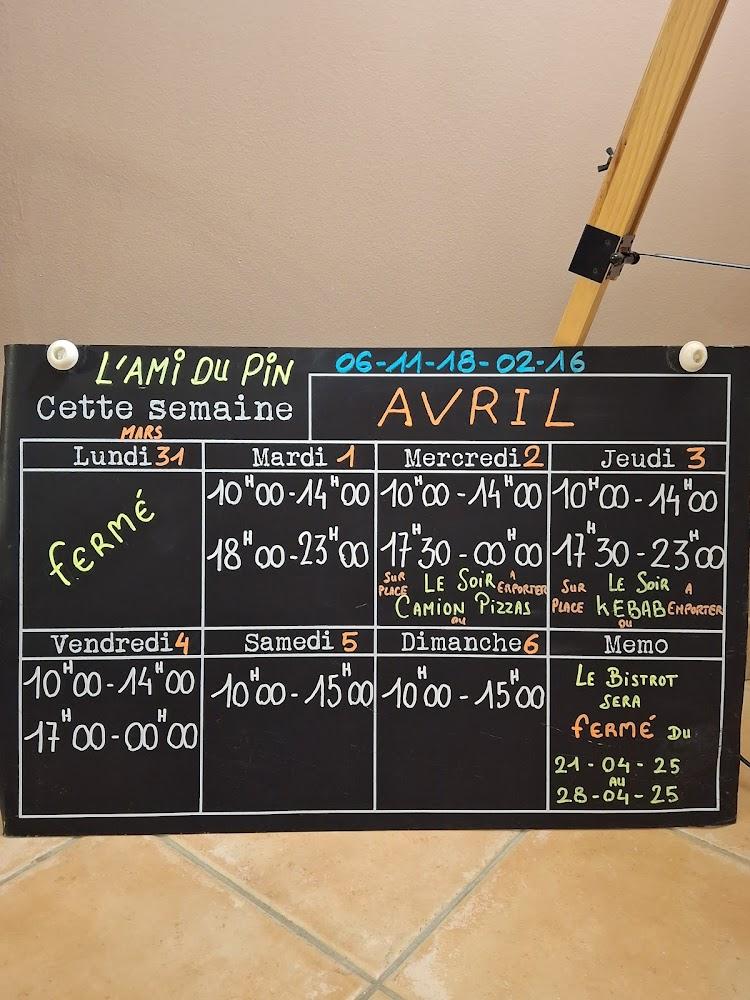 L'AMI DU PIN
06-11-18-02-16
Cette semaine
AVRIL
MARS
Lundi 31
FERMÉ
Mardi 1
10H00-14H00
18H00-23H00
Mercredi 2
10H00-14H00
17H30-00H00
SUR PLACE LE SOIR À EMPORTER
CAMION PIZZAS
OU
Jeudi 3
10H00-14H00
17H30-23H00
SUR PLACE LE SOIR A EMPORTER
KEBAB
OU
Vendredi 4
10H00-14H00
17H00-00H00
Samedi 5
10H00-15H00
Dimanche 6
10H00-15H00
Memo
LE BISTROT
SERA
FERMÉ DU
21-04-25
AU
28-04-25